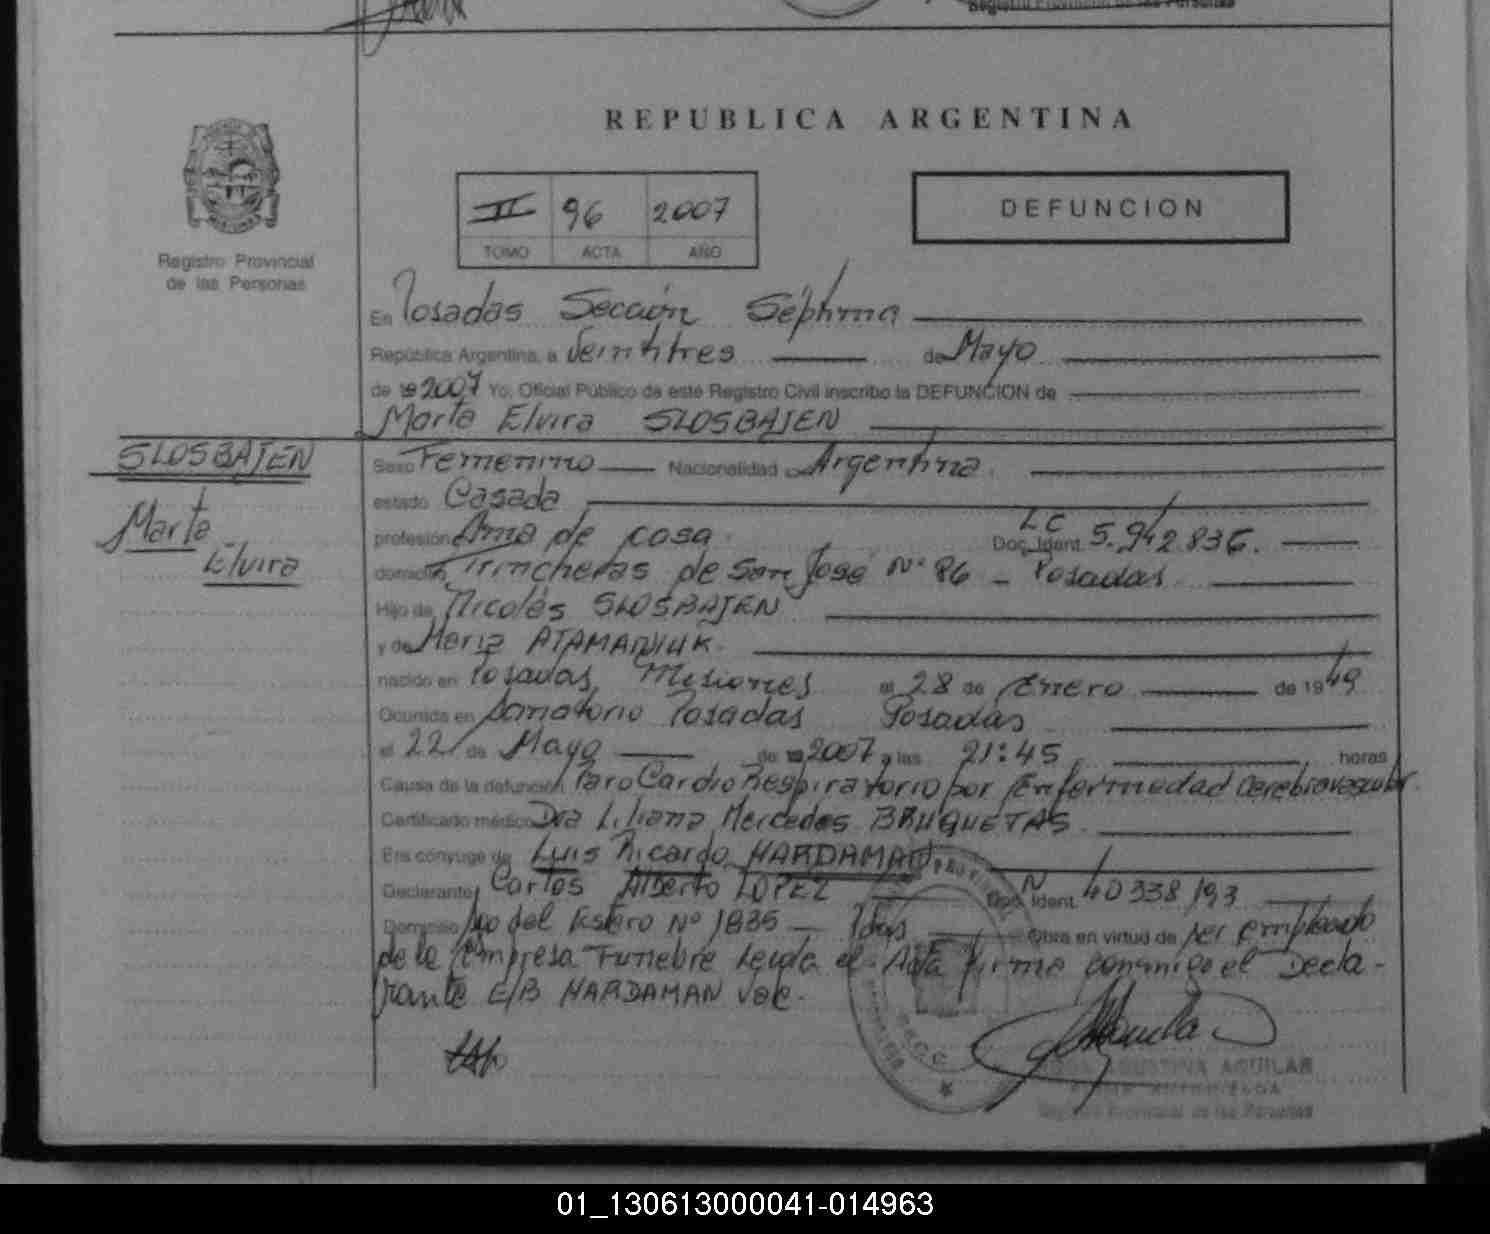 Registro Provincial de las Personas
REPUBLICA ARGENTINA
II 96 2007
TOMO ACTA AÑO
DEFUNCION
Registro Provincial
de las Personas
En Posadas Sección Séptima
República Argentina, a Veintitres de Mayo
de 19 2007 Yo, Oficial Público de este Registro Civil inscribo la DEFUNCION de
Marta Elvira SLOSBAJEN
SLOSBAJEN
Marta
Elvira
Sexo Femenino Nacionalidad Argentina.
estado Casada
profesión Ama de casa. Doc. Ident. LC 5.942.836.
domicilio Trincheras de San José N° 86 - Posadas
Hijo de Nicolás SLOSBAJEN
y de María ATAMANIUK.
nacido en Posadas Misiones el 28 de Enero de 1949
Ocurrida en Sanatorio Posadas Posadas
el 22 de Mayo de 19 2007, a las 21:45 horas
Causa de la defunción Paro Cardio Respiratorio por Enfermedad Cerebrovascular.
Certificado médico Dra Liliana Mercedes BRUQUETAS
Era cónyuge de Luis Ricardo HARDAMAN
Declarante Carlos Alberto LOPEZ Doc. Ident. N 40338193
Domicilio Sgo del Estero N° 1835 - Pdas Obra en virtud de ser empleado
de la Empresa Funebre Leida el Acta firma conmigo el Decla-
rante E/B HARDAMAN vale.
AGUSTINA AGUILAR
Registro Provincial de las Personas
01_130613000041-014963